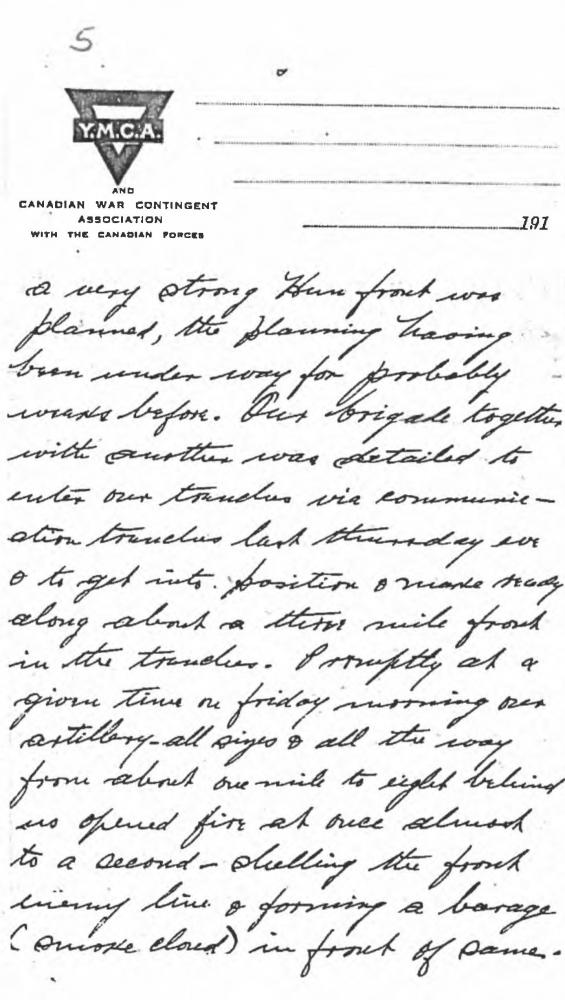 5
Y.M.C.A.
AND
CANADIAN WAR CONTINGENT
ASSOCIATION
WITH THE CANADIAN FORCES
191
a very strong Hun front was
planned, the planning having
been under way for probably
weeks before. Our brigade together
with another was detailed to
enter our trenches via communic-
ation trenches last thursday eve
& to get into position & make ready
along about a three mile front
in the trenches. Promptly at a
given time on friday morning our
artillery - all sizes & all the way
from about one mile to eight behind
us opened fire at once almost
to a second - shelling the front
enemy line & forming a barage
(smoke cloud) in front of same.